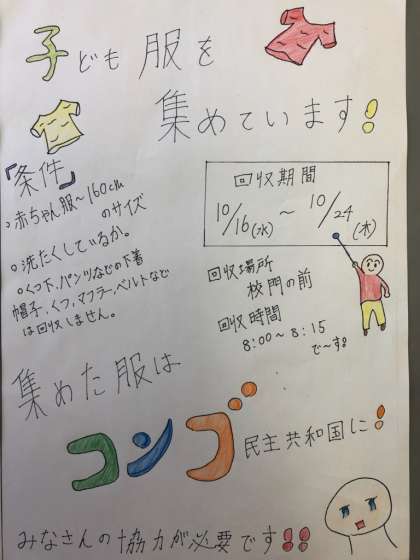 子ども服を
集めています!
『条件』
○赤ちゃん服〜160cm
のサイズ
○洗たくしているか。
○くつ下、パンツなどの下着
帽子、くつ、マフラー、ベルトなど
は回収しません。
回収期間
10/16(水)〜10/24(木)
回収場所
校門の前
回収時間
8:00〜8:15
で〜す!
集めた服は
コンゴ民主共和国に!
みなさんの協力が必要です!!